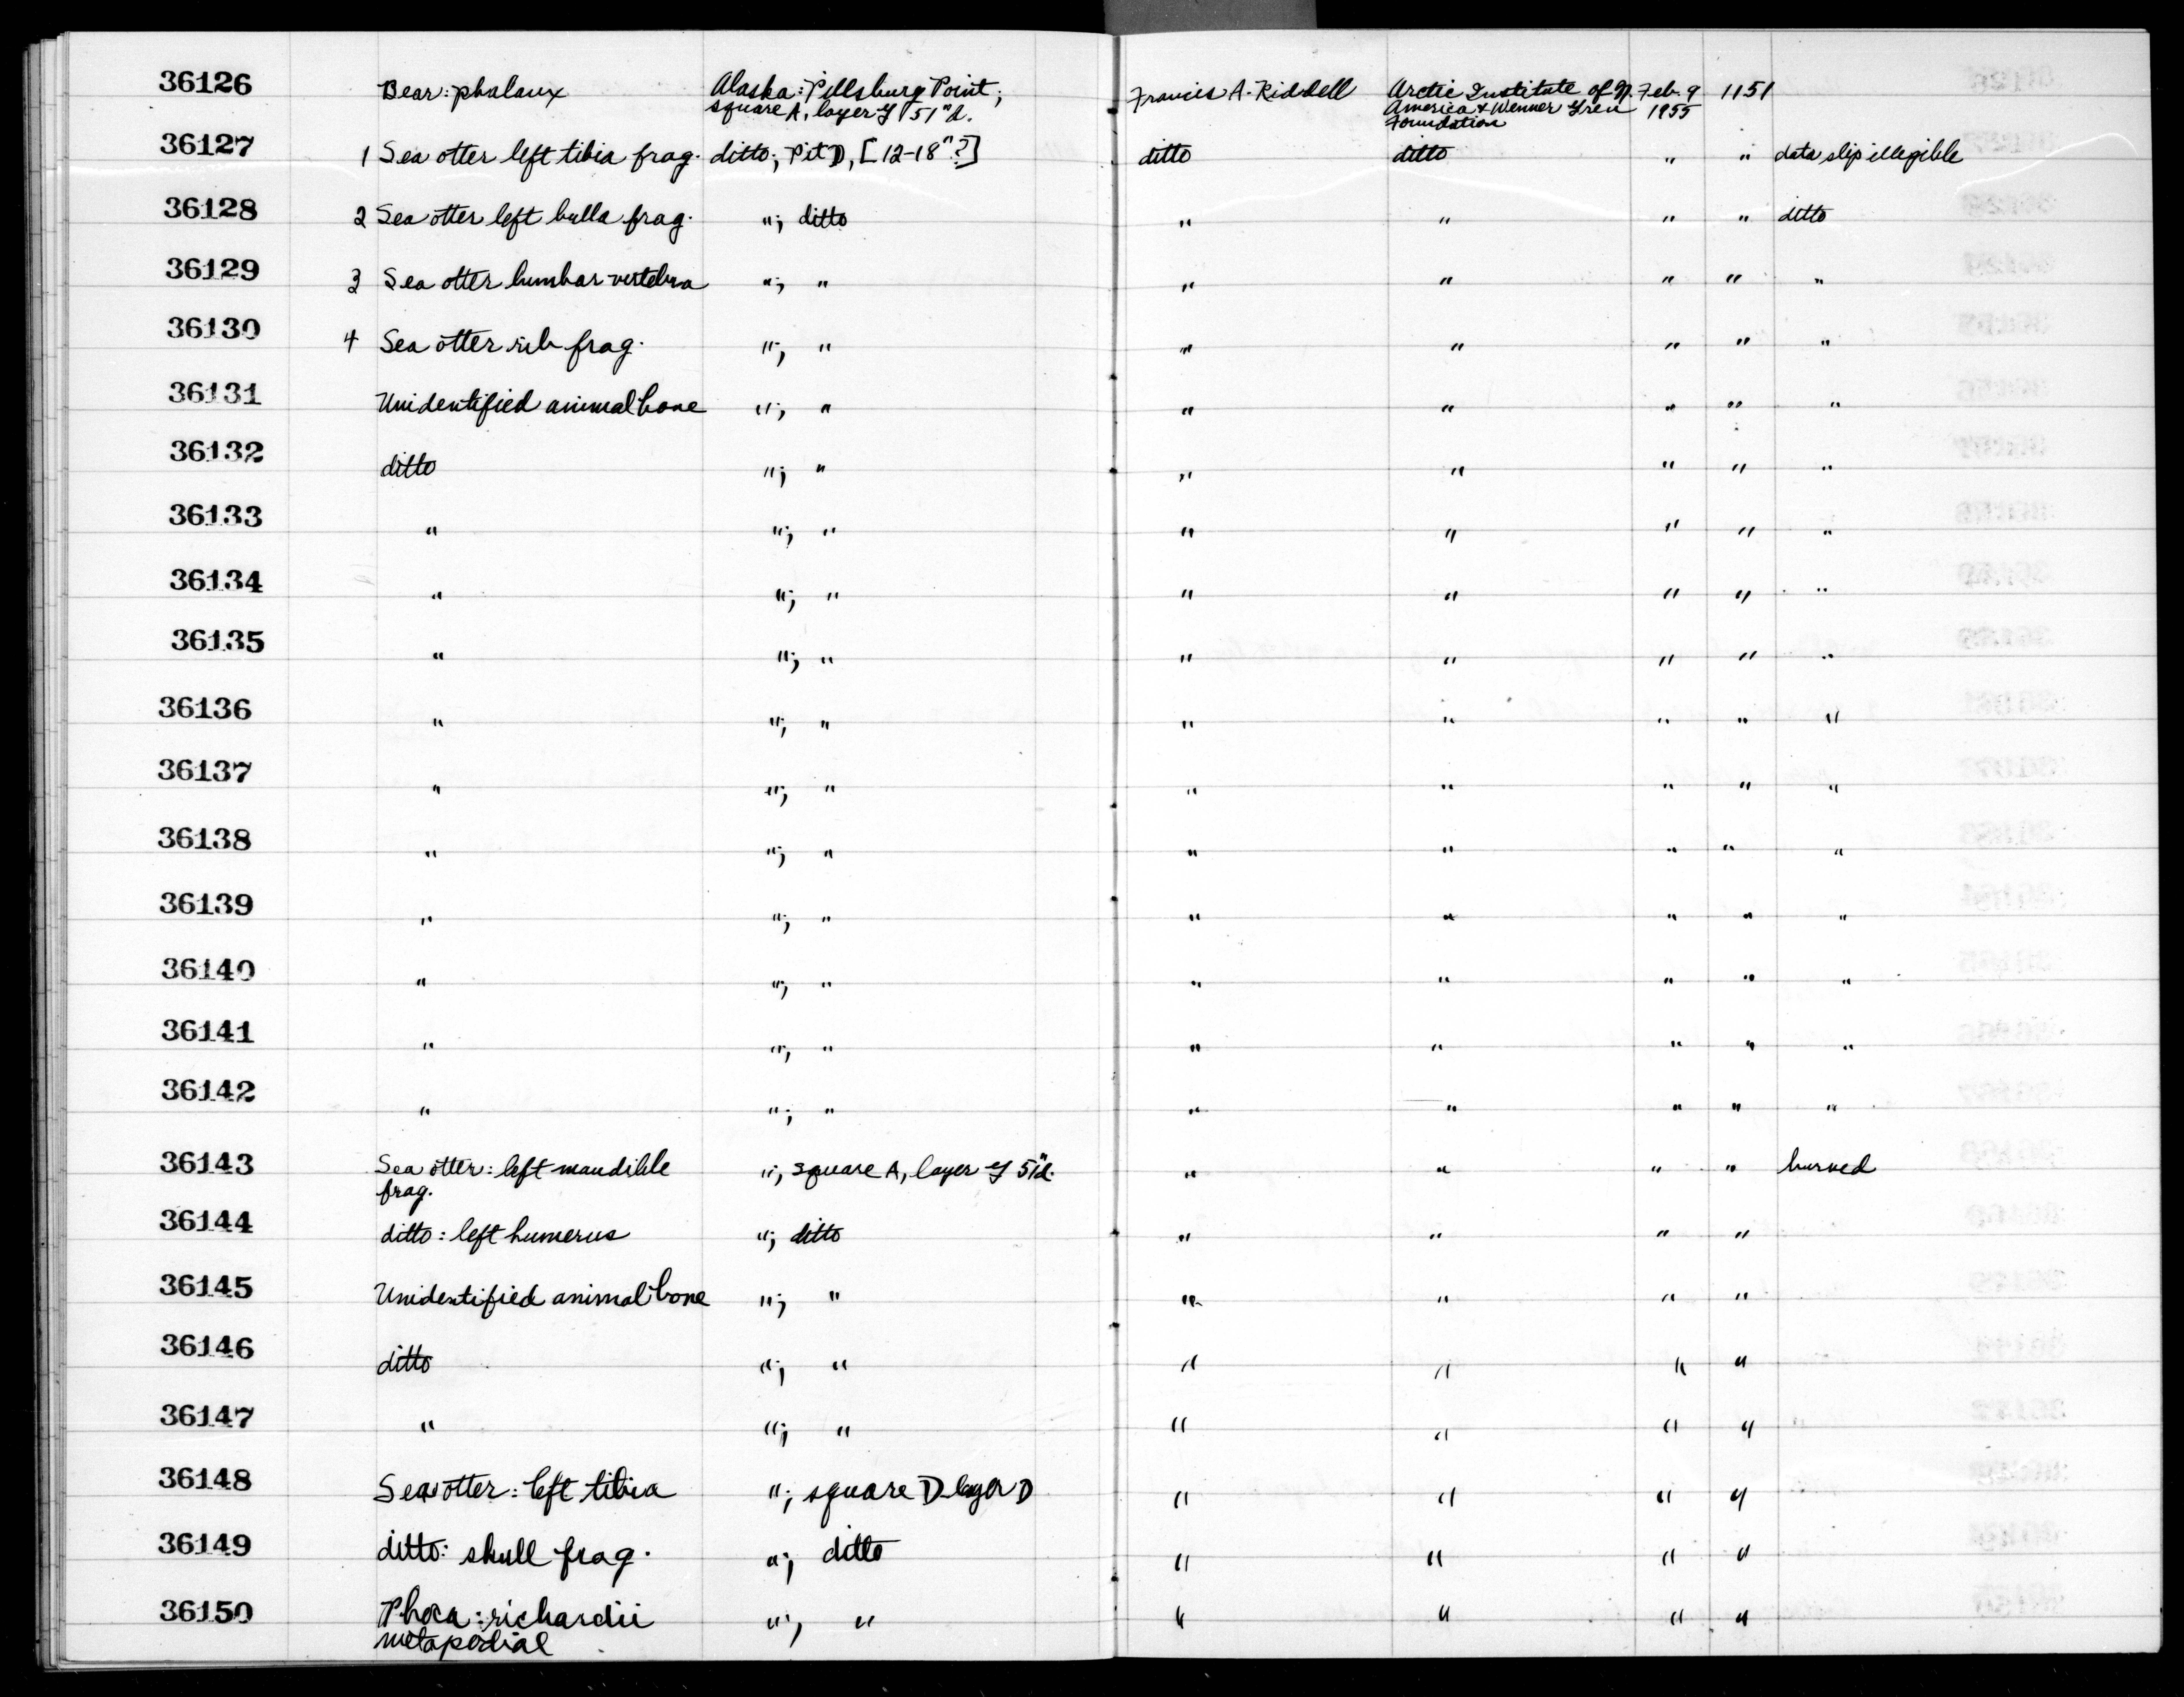 36126 Bear: phalanx Alaska: Pillsbury Point; Francis A. Riddell Arctic Institute of N. Feb. 9 1151
square A, layer y 51"d. America & Wenner Gren 1955
Foundation
36127 1 Sea otter left tibia frag. ditto; Pit D, [12-18"?] ditto ditto " " data slip illegible
36128 2 Sea otter left bulla frag. "; ditto " " " " ditto
36129 3 Sea otter lumbar vertebra "; " " " " " "
36130 4 Sea otter rib frag. "; " " " " " "
36131 Unidentified animal bone "; " " " " " "
36132 ditto "; " " " " " "
36133 " "; " " " " " "
36134 " "; " " " " " "
36135 " "; " " " " " "
36136 " "; " " " " " "
36137 " "; " " " " " "
36138 " "; " " " " " "
36139 " "; " " " " " "
36140 " "; " " " " " "
36141 " "; " " " " " "
36142 " "; " " " " " "
36143 Sea otter: left mandible "; square A, layer y 51"d. " " " " burned
frag.
36144 ditto: left humerus "; ditto " " " "
36145 Unidentified animal bone "; " " " " "
36146 ditto "; " " " " "
36147 " "; " " " " "
36148 Sea otter: left tibia "; square D layer D " " " "
36149 ditto: skull frag. "; ditto " " " "
36150 Phoca: richardii "; " " " " "
metapodial